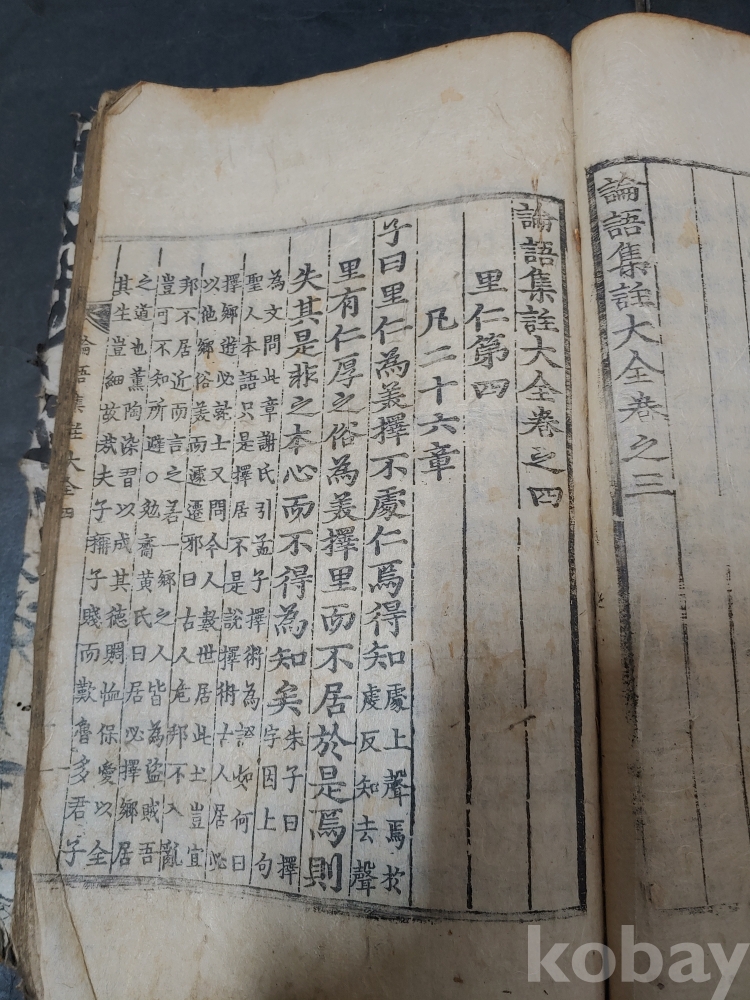 論語集註大全卷之三
論語集註大全卷之四
里仁第四
凡二十六章
子曰里仁為美擇不處仁焉得知
處上聲焉於
虔反知去聲
里有仁厚之俗為美擇里而不居於是焉則
失其是非之本心而不得為知矣
朱子曰擇
字因上句
為文問此章謝氏引孟子擇術為証如何曰
聖人本語只是擇居不是說擇術古人居必
擇鄉遊必就士又問今人數世居此土豈宜
以他鄉俗美而遽遷邪曰古人危邦不入亂
邦不居近而言之若一鄉之人皆為盜賊吾
豈可不知所避○勉齋黃氏曰居必擇鄉居
之道也薰陶染習以成其德賙恤保愛以全
其生豈細故哉夫子稱子賤而歎魯多君子
論語集註大全四
kobay